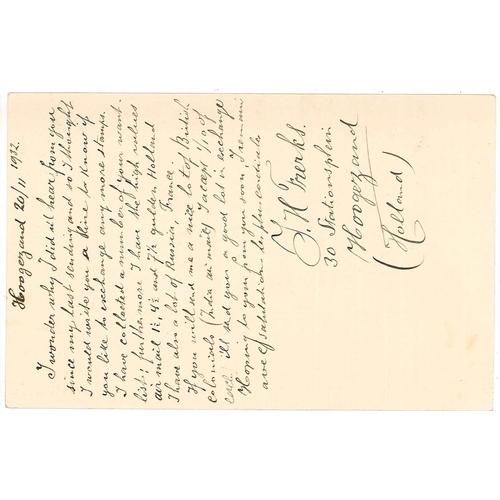 Hoogezand 20/11 1932.
I wonder why I did n't hear from you
since my last sending and so I thought
I would write you a line to know if
you like to exchange any more stamps.
I have collected a number of your want-
list; furthermore I have the high values
air mail 1½, 4½ and 7½ gulden Holland
I have also a lot of Russia, France.
If you will send me a nice lot of British
Colonials (India air mails) I accept 1/10 of
each. i'll send you a good lot in exchange
Hoping to from you soon, I remain
salutations les plus cordiales
J. H. Frerks.
30 Stationsplein
Hoogezand
(Holland)